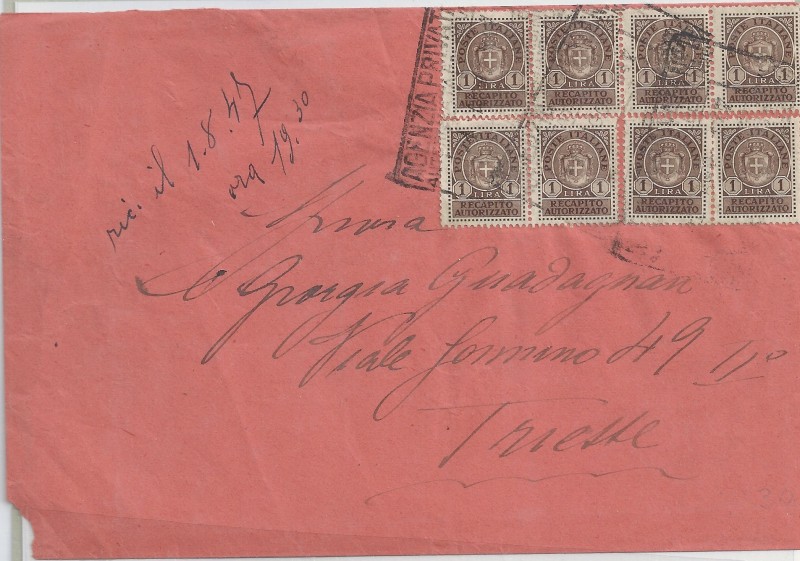 POSTE ITALIANE POSTE ITALIANE POSTE ITALIANE POSTE ITALIANE
1 LIRA 1 1 LIRA 1 1 LIRA 1 1 LIRA 1
RECAPITO AUTORIZZATO RECAPITO AUTORIZZATO RECAPITO AUTORIZZATO RECAPITO AUTORIZZATO
POSTE ITALIANE POSTE ITALIANE POSTE ITALIANE POSTE ITALIANE
1 LIRA 1 1 LIRA 1 1 LIRA 1 1 LIRA 1
RECAPITO AUTORIZZATO RECAPITO AUTORIZZATO RECAPITO AUTORIZZATO RECAPITO AUTORIZZATO
AGENZIA PRIVATA
ric. il 1.8.47
ora 19.30
Giorgia Guadagnan
Viale 49 II°
Trieste